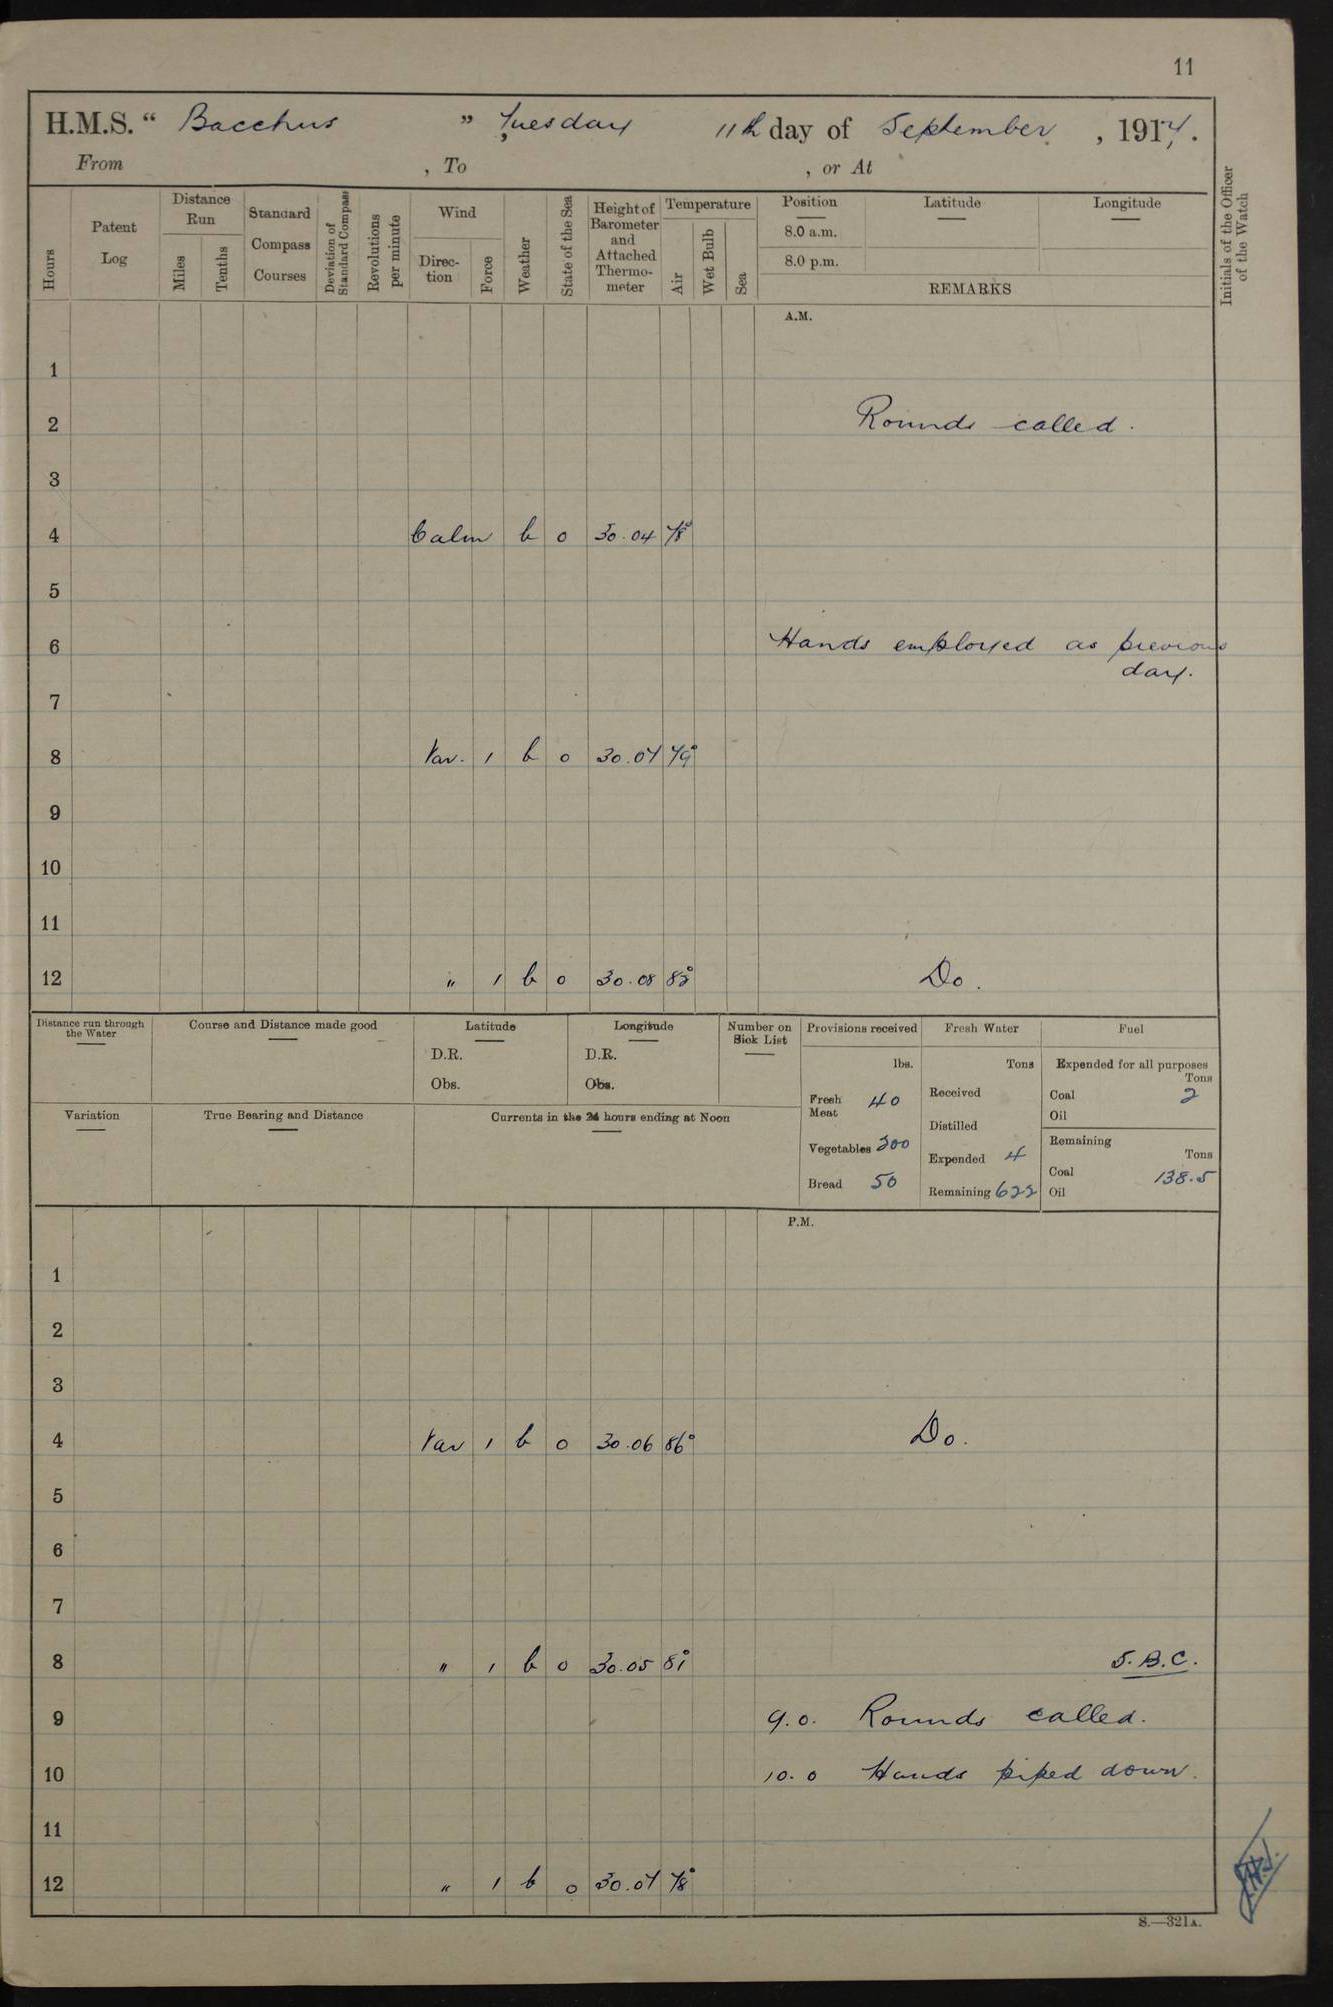 11
H.M.S. “ Bacchus ” Tuesday 11th day of September , 1917.
From , To , or At
Hours
Patent Log
Distance Run
Miles
Tenths
Standard Compass Courses
Deviation of Standard Compass
Revolutions per minute
Wind
Direc-tion
Force
Weather
State of the Sea
Height of Barometer and Attached Thermo-meter
Temperature
Air
Wet Bulb
Sea
Position
8.0 a.m.
8.0 p.m.
Latitude
Longitude
REMARKS
Initials of the Officer of the Watch
A.M.
1
2 Rounds called.
3
4 Calm b 0 30.04 78°
5
6 Hands employed as previous
day.
7
8 Var. 1 b 0 30.07 79°
9
10
11
12 " 1 b 0 30.08 82° Do.
Distance run through the Water
Course and Distance made good
Latitude
D.R.
Obs.
Longitude
D.R.
Obs.
Number on Sick List
Variation
True Bearing and Distance
Currents in the 24 hours ending at Noon
Provisions received
lbs.
Fresh Meat 40
Vegetables 200
Bread 50
Fresh Water
Tons
Received
Distilled
Expended 4
Remaining 622
Fuel
Expended for all purposes
Tons
Coal 2
Oil
Remaining
Tons
Coal 138.5
Oil
P.M.
1
2
3
4 Var 1 b 0 30.06 86° Do.
5
6
7
8 " 1 b 0 30.05 81° S.B.C.
9 9.0. Rounds called.
10 10.0 Hands piped down.
11
12 " 1 b 0 30.07 78°
S.—321A.